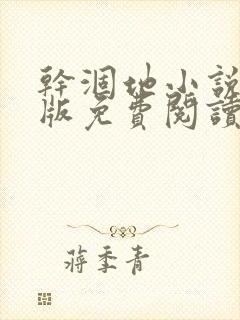 幹涸地小説
版免費閱讀
蔣季青